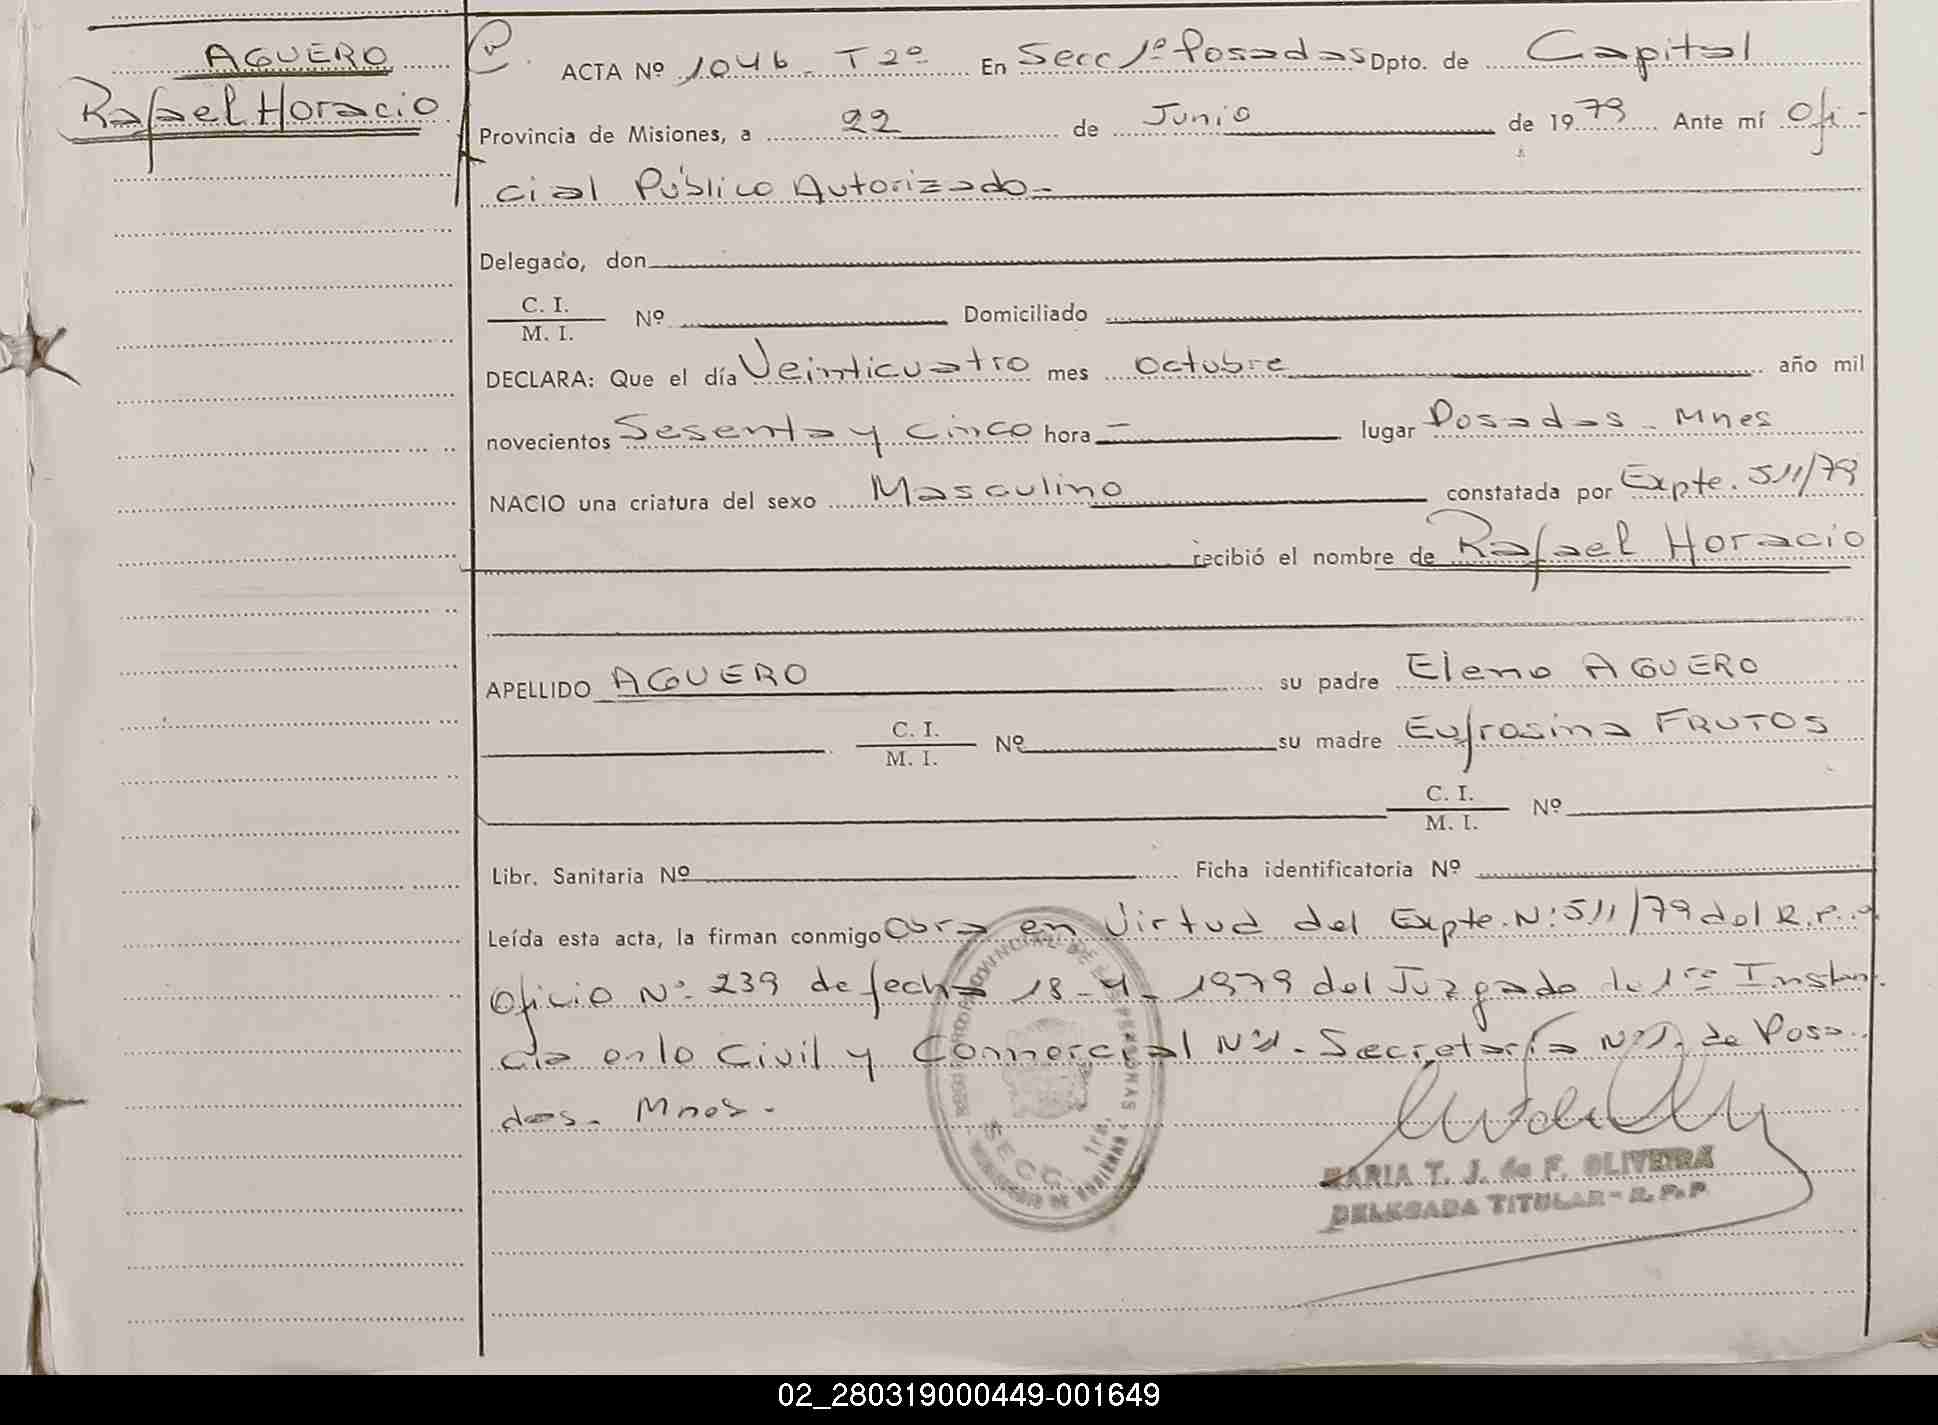 AGUERO
Rafael Horacio
ACTA Nº 1046 T 2º En Secc 1º Posadas Dpto. de Capital
Provincia de Misiones, a 22 de Junio de 1979 Ante mí Ofi-
cial Público Autorizado-
Delegado, don
C. I.
M. I.
Nº Domiciliado
DECLARA: Que el día Veinticuatro mes octubre año mil
novecientos Sesenta y cinco hora - lugar Posadas - Mnes
NACIO una criatura del sexo Masculino constatada por Expte. 511/79
recibió el nombre de Rafael Horacio
APELLIDO AGUERO su padre Eleno AGUERO
C. I.
M. I.
Nº su madre Eufrasina FRUTOS
C. I.
M. I.
Nº
Libr. Sanitaria Nº Ficha identificatoria Nº
Leída esta acta, la firman conmigo Obra en Virtud del Expte. Nº 511/79 del R.P.
Oficio Nº 239 de fecha 18-4-1979 del Juzgado de 1ra Instan-
cia en lo Civil y Comercial Nº 1. Secretaría Nº 1. de Posa-
das. Mnes.
REGISTRO PROVINCIAL DE LAS PERSONAS
SECC. 1ra.
MINISTERIO DE GOBIERNO
MARIA T. J. de F. OLIVEIRA
DELEGADA TITULAR - R. P. P
02_280319000449-001649